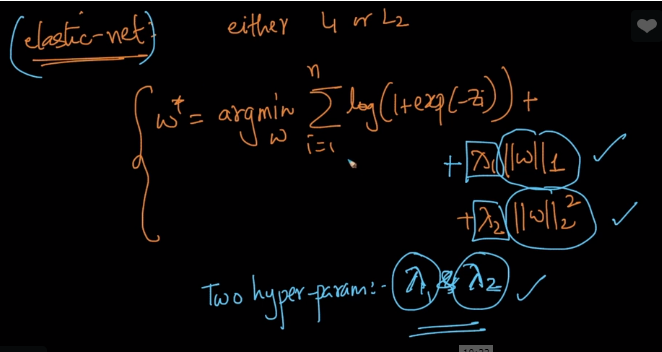 (elastic-net): either L1 or L2
w* = argmin_w Σ_{i=1}^{n} log(1+exp(-zi)) +
+ λ1 ||w||_1
+ λ2 ||w||_2^2
Two hyper-param:- λ1 & λ2